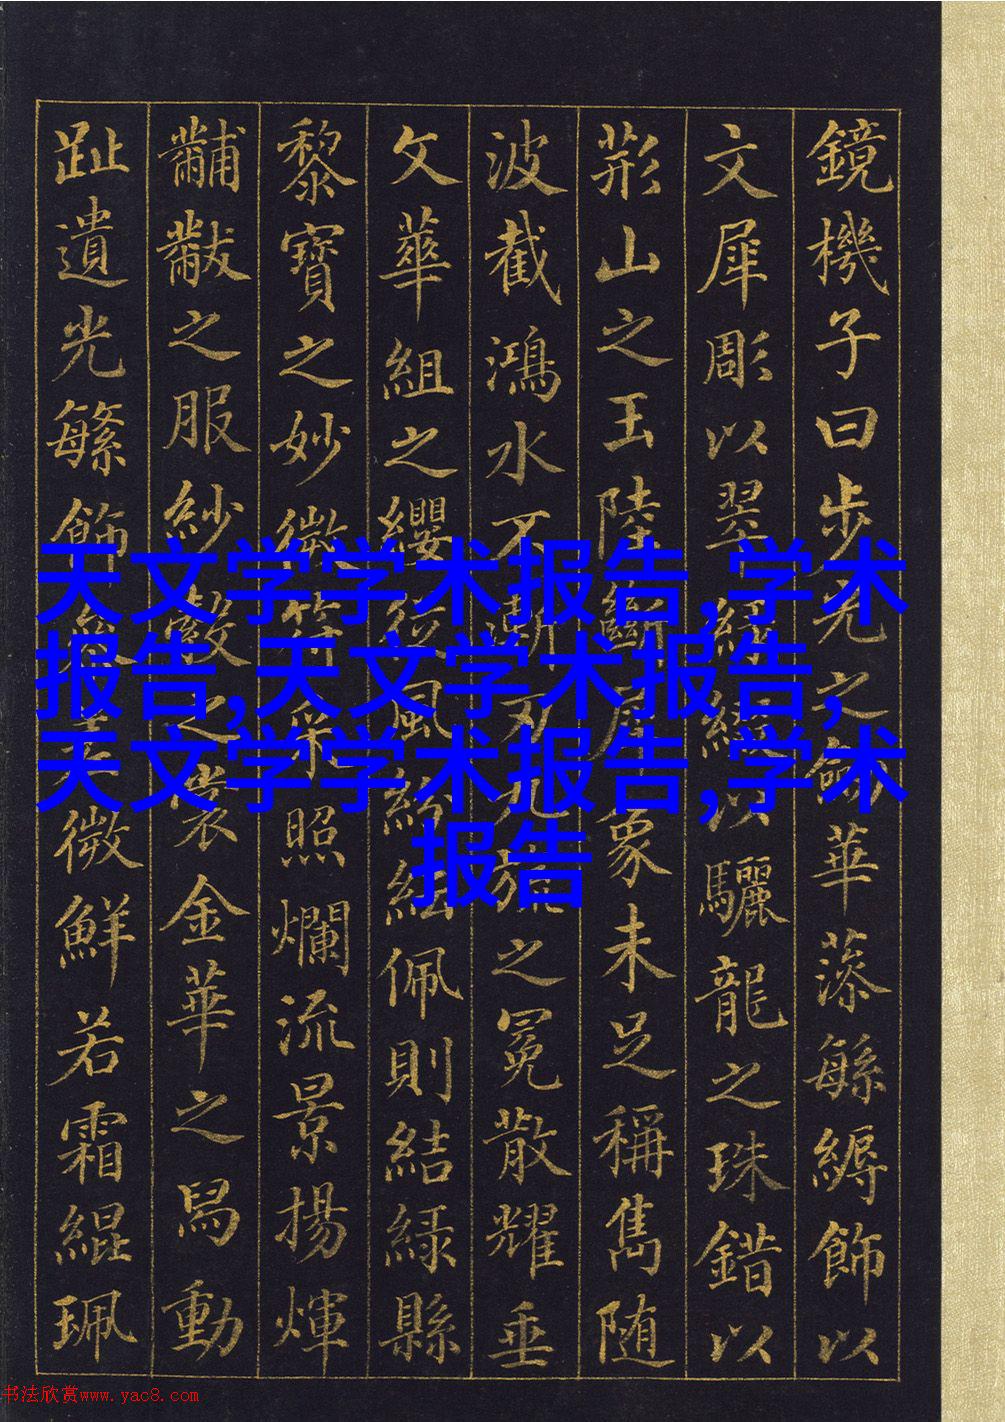 鏡機子曰步光之劍華藻繁縟飾以
文犀彫以翠緑綴以驪龍之珠錯以
荊山之玉陸斷犀象未足稱雋随
波截鴻水不漸刃九旒之冕散耀垂
文華組之纓從風紛紜佩則結緑縣
黎寶之妙微符采照爛流景揚煇
黼黻之服紗縠之裳金華之舄動
趾遺光繁飾參差微鮮若霜緄珮
天文学学术报告,学术
报告,天文学术报告,
天文学学术报告,学术
报告
书法欣赏www.yac8.com